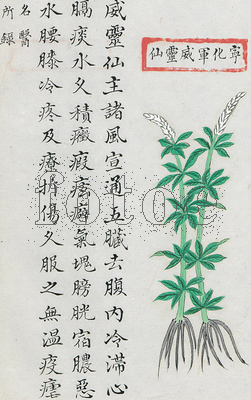 寧化軍威靈仙
威靈仙主諸風宣通五臟去腹內冷滯心
膈痰水久積癥瘕痃癖氣塊膀胱宿膿惡
水腰膝冷疼及療折傷久服之無溫疫瘧
名醫
所錄
fotoe